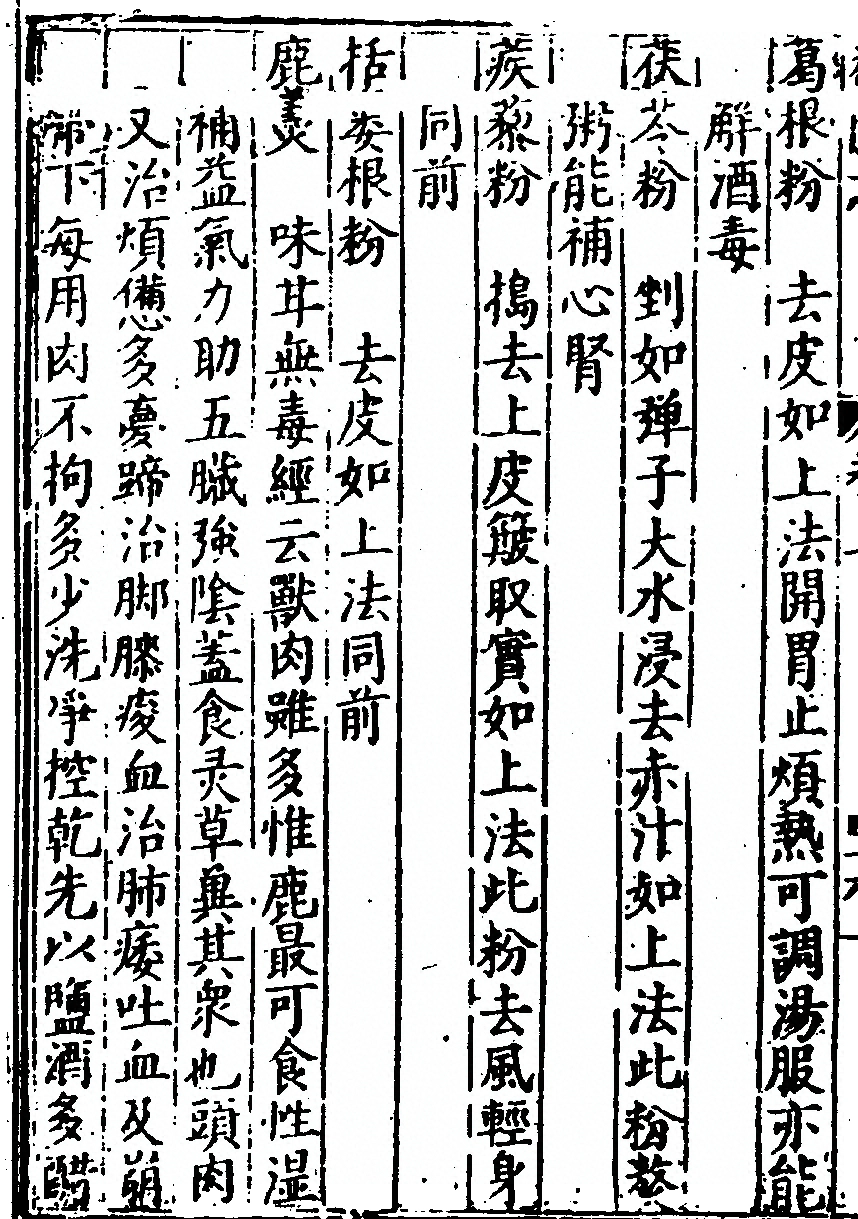 葛根粉　去皮如上法開胃止煩熱可調湯服亦能
解酒毒
茯苓粉　剉如彈子大水浸去赤汁如上法此粉熬
粥能補心腎
蒺藜粉　搗去上皮簸取實如上法此粉去風輕身
同前
栝蔞根粉　去皮如上法同前
鹿羹　味甘無毒經云獸肉雖多惟鹿最可食性溫
補益氣力助五臟強陰蓋食灵草異其衆也頭肉
又治煩憊多夢蹄治脚膝痠血治肺痿吐血及崩
帶下每用肉不拘多少洗净控乾先以鹽酒多醋